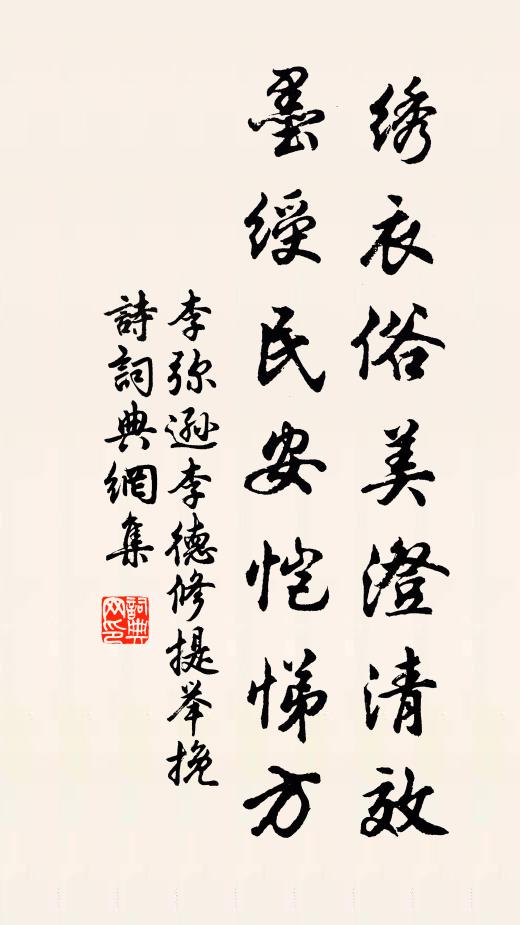 绣衣俗美澄清效
墨绶民安恺悌方
李弥逊李德修提举挽
詩詞典網集
詞典网印